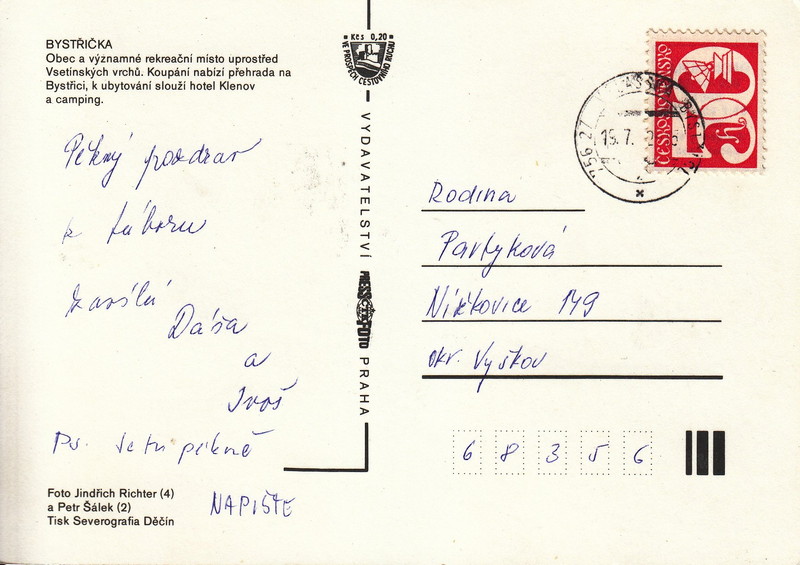 BYSTŘIČKA
Obec a významné rekreační místo uprostřed
Vsetínských vrchů. Koupání nabízí přehrada na
Bystřici, k ubytování slouží hotel Klenov
a camping.
Pěkný pozdrav
z táboru
zasílá
Dáša
a
Ivoš
Ps. Je tu pěkně
NAPIŠTE
Foto Jindřich Richter (4)
a Petr Šálek (2)
Tisk Severografia Děčín
Kčs 0,20
VE PROSPĚCH CESTOVNÍHO RUCHU
VYDAVATELSTVÍ
PRESSFOTO
PRAHA
ČESKOSLOVENSKO
50 h
756 27
15.7.
Rodina
Partyková
Nížkovice 149
okr. Vyškov
68356